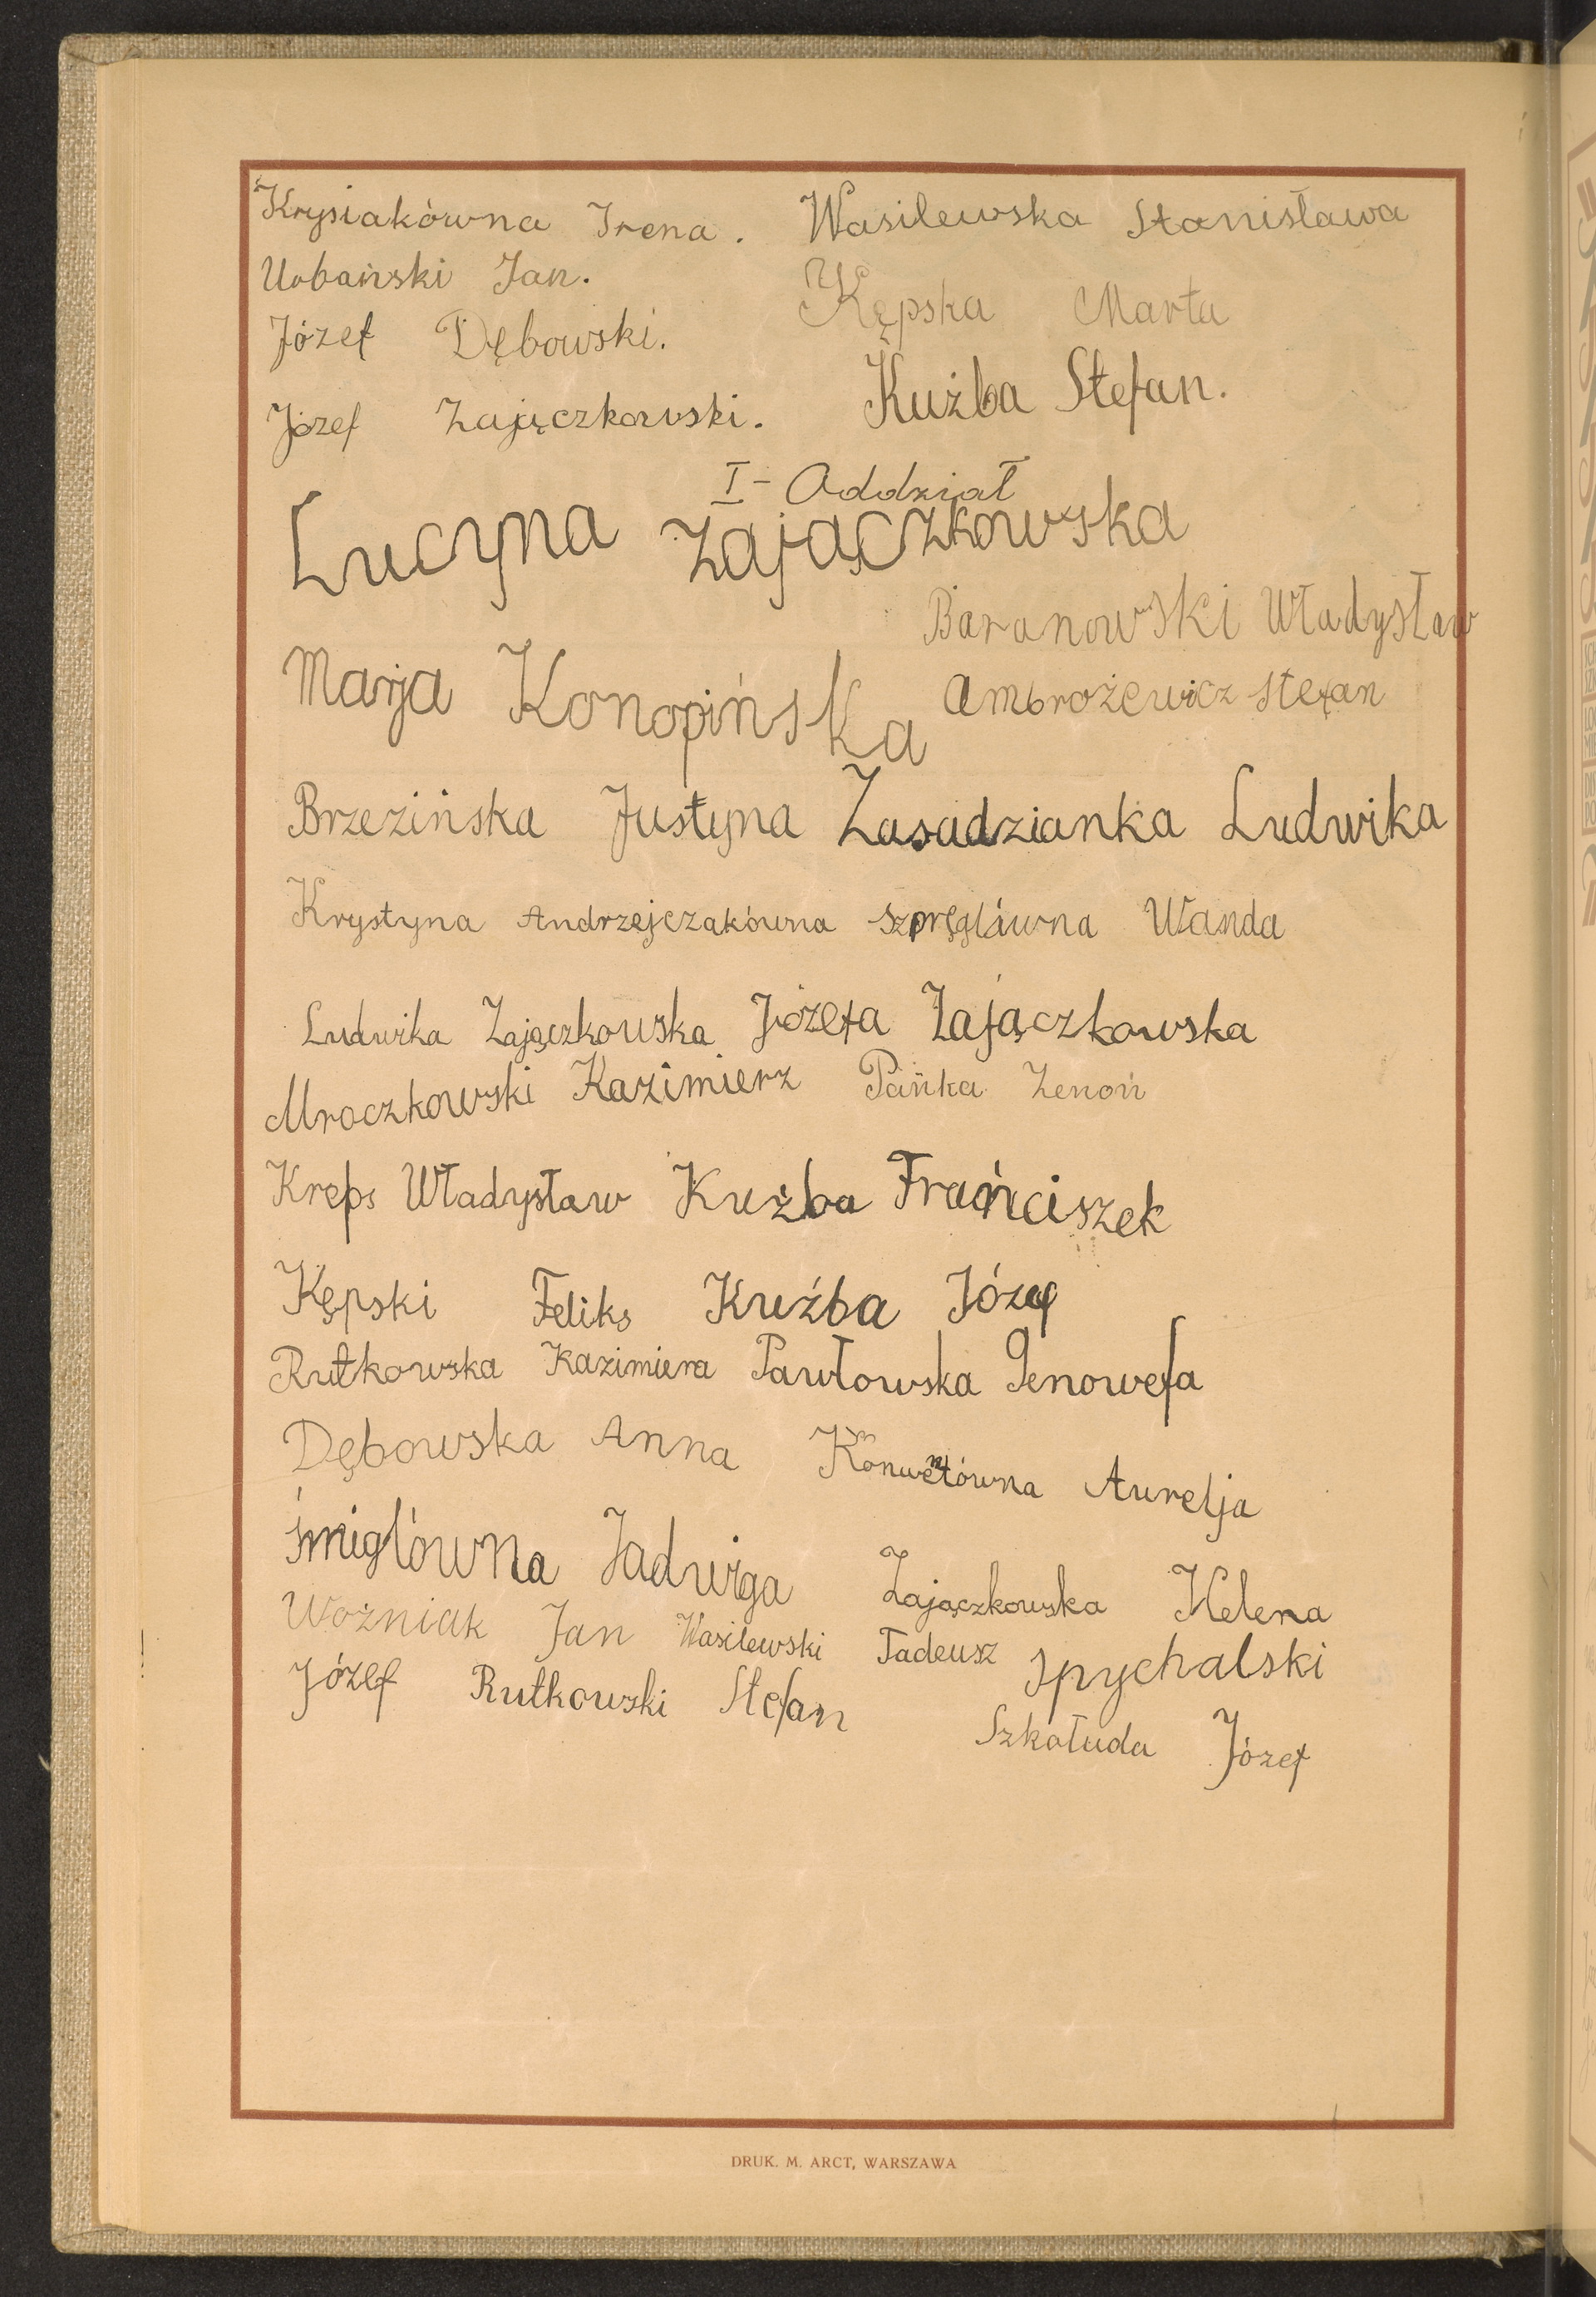 Krysiakówna Irena. Wasilewska Stanisława
Urbański Jan. Kępska Marta
Józef Dębowski.
Kuźba Stefan.
Józef Zajączkowski.
I - Oddział
Lucyna Zajączkowska
Baranowski Władysław
Marja Konopińska
Ambrożewicz Stefan
Brzezińska Justyna Zasadzianka Ludwika
Krystyna Andrzejczakówna Szpręglówna Wanda
Ludwika Zajączkowska Józefa Zajączkowska
Mroczkowski Kazimierz Pańka Zenoń
Kreps Władysław Kużba Frańciszek
Kępski Feliks Kuźba Józef
Rutkowska Kazimiera Pawłowska Genowefa
Dębowska Anna Konwentówna Aurelja
Śmiglówna Jadwiga Zajączkowska Helena
Woźniak Jan Wasilewski Tadeusz Spychalski
Józef Rutkowski Stefan
Szkałuda Józef
DRUK. M. ARCT, WARSZAWA